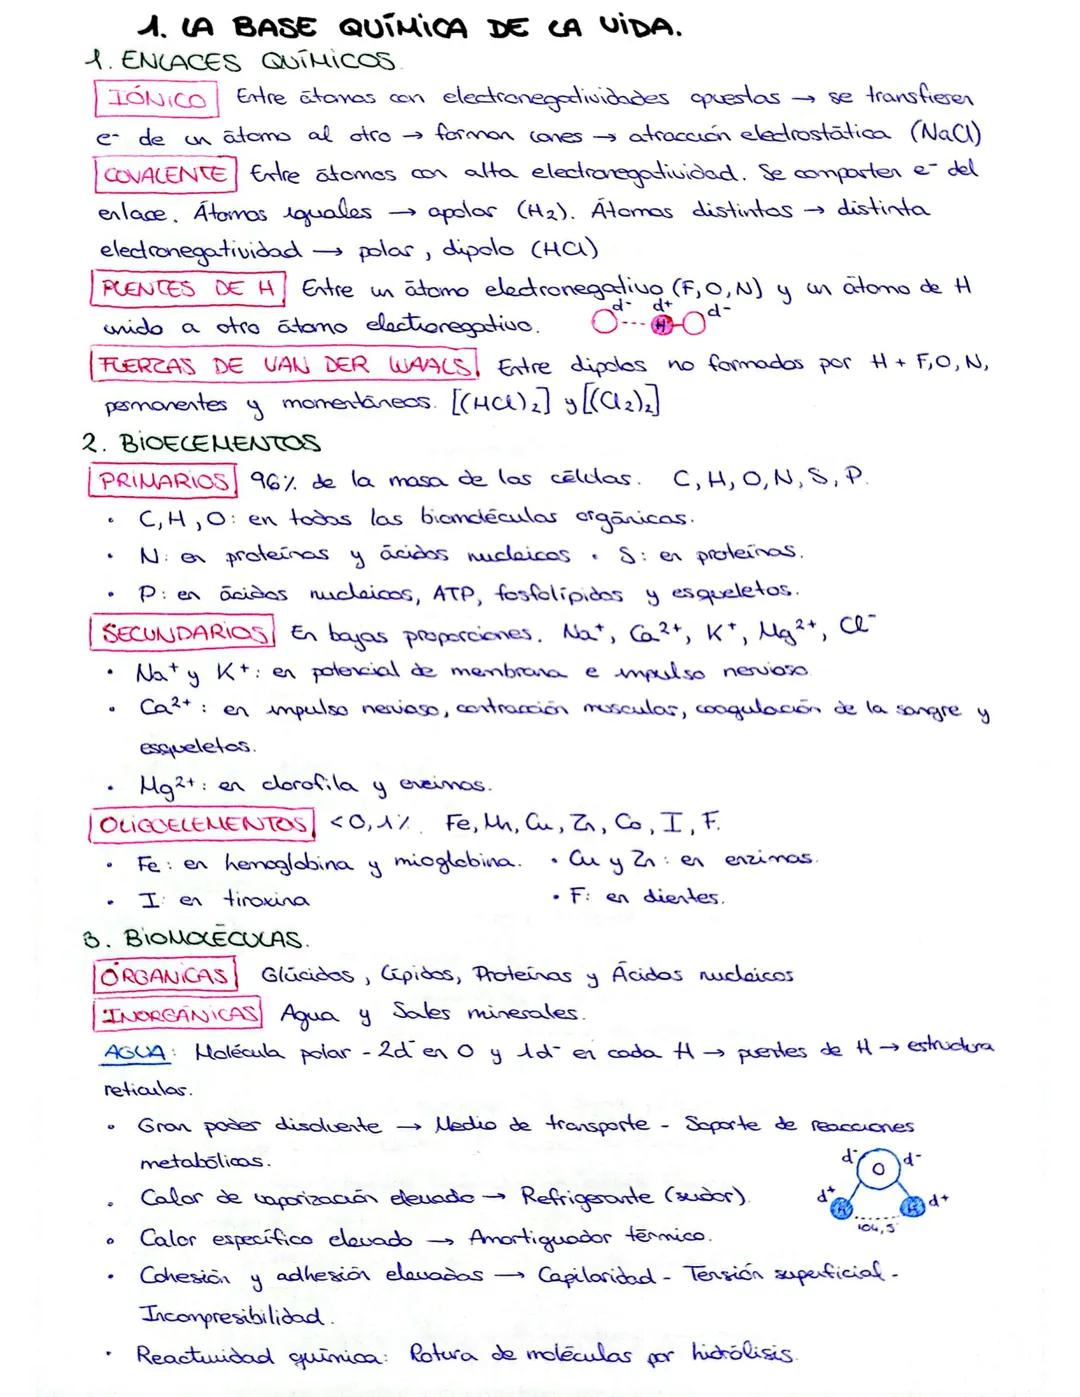 1. LA BASE QUÍMICA DE LA VIDA.
1. ENLACES QUÍMICOS.
IÓNICO Entre átomos con electronegatividades opuestas → se transfieren
e⁻ de un átomo al otro → forman iones → atracción electrostática (NaCl)
COVALENTE Entre átomos con alta electronegatividad. Se comparten e⁻ del
enlace. Átomos iguales → apolar (H₂). Átomos distintos → distinta
electronegatividad → polar, dipolo (HCl)
PUENTES DE H Entre un átomo electronegativo (F, O, N) y un átomo de H
unido a otro átomo electronegativo. d⁻ d⁺ d⁻ H
FUERZAS DE VAN DER WAALS. Entre dipolos no formados por H + F, O, N,
permanentes y momentáneos. [(HCl)₂] y [(Cl₂)₂]
2. BIOELEMENTOS
PRIMARIOS 96% de la masa de las células. C, H, O, N, S, P.
• C, H, O: en todas las biomoléculas orgánicas.
• N: en proteínas y ácidos nucleicos • S: en proteínas.
• P: en ácidos nucleicos, ATP, fosfolípidos y esqueletos.
SECUNDARIOS En bajas proporciones. Na⁺, Ca²⁺, K⁺, Mg²⁺, Cl⁻
• Na⁺ y K⁺: en potencial de membrana e impulso nervioso.
• Ca²⁺: en impulso nervioso, contracción muscular, coagulación de la sangre y
esqueletos.
• Mg²⁺: en clorofila y enzimas.
OLIGOELEMENTOS <0,1%. Fe, Mn, Cu, Zn, Co, I, F.
• Fe: en hemoglobina y mioglobina. • Cu y Zn: en enzimas.
• I: en tiroxina • F: en dientes.
3. BIOMOLÉCULAS.
ORGÁNICAS Glúcidos, Lípidos, Proteínas y Ácidos nucleicos
INORGÁNICAS Agua y Sales minerales.
AGUA: Molécula polar - 2d⁻ en O y 1d⁻ en cada H → puentes de H → estructura
reticular.
• Gran poder disolvente → Medio de transporte - Soporte de reacciones
metabólicas.
d⁻ O d⁻
• Calor de vaporización elevado → Refrigerante (sudor).
d⁺ H H d⁺
104,5
• Calor específico elevado → Amortiguador térmico.
• Cohesión y adhesión elevadas → Capilaridad - Tensión superficial -
Incompresibilidad.
• Reactividad química: Rotura de moléculas por hidrólisis.